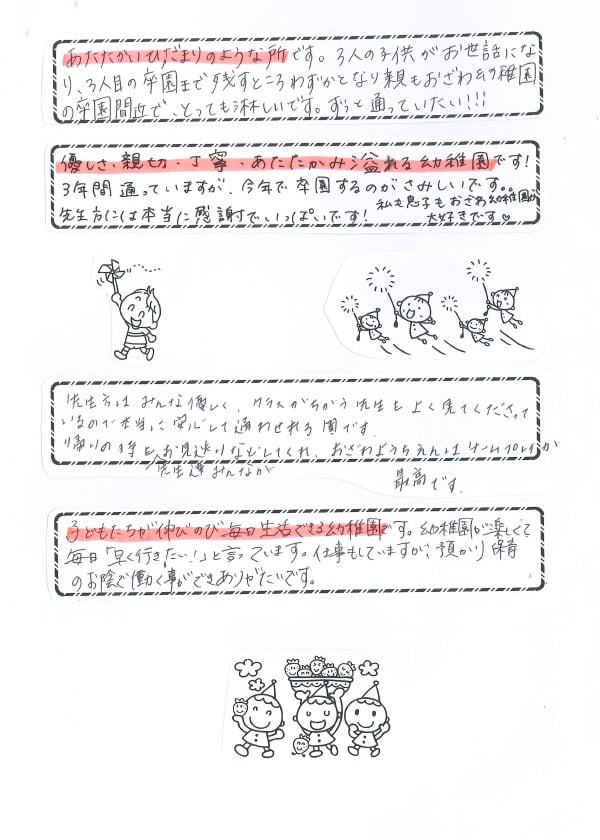 あたたかいひだまりのような所です。3人の子供がお世話にな
り、3人目の卒園まで残すところわずかとなり親もおざわ幼稚園
の卒園間近で、とっても淋しいです。ずっと通っていたい!!!
優しさ・親切・丁寧・あたたかみ溢れる幼稚園です!
3年間通っていますが、今年で卒園するのがさみしいです。。
先生方には本当に感謝でいっぱいです!
私も息子もおざわ幼稚園が
大好きです♡
先生方はみんな優しく、クラスがちがう先生もよく見てくださって
いるので本当に安心して通わせれる園です。
帰りの時もお見送りなどしてくれ、おざわようちえんはチームプレイが
先生達みんなが
最高です。
子どもたちが伸びのび毎日生活できる幼稚園です。幼稚園が楽しくて
毎日「早く行きたい!」と言っています。仕事もしていますが、預かり保育
のお陰で働く事ができありがたいです。